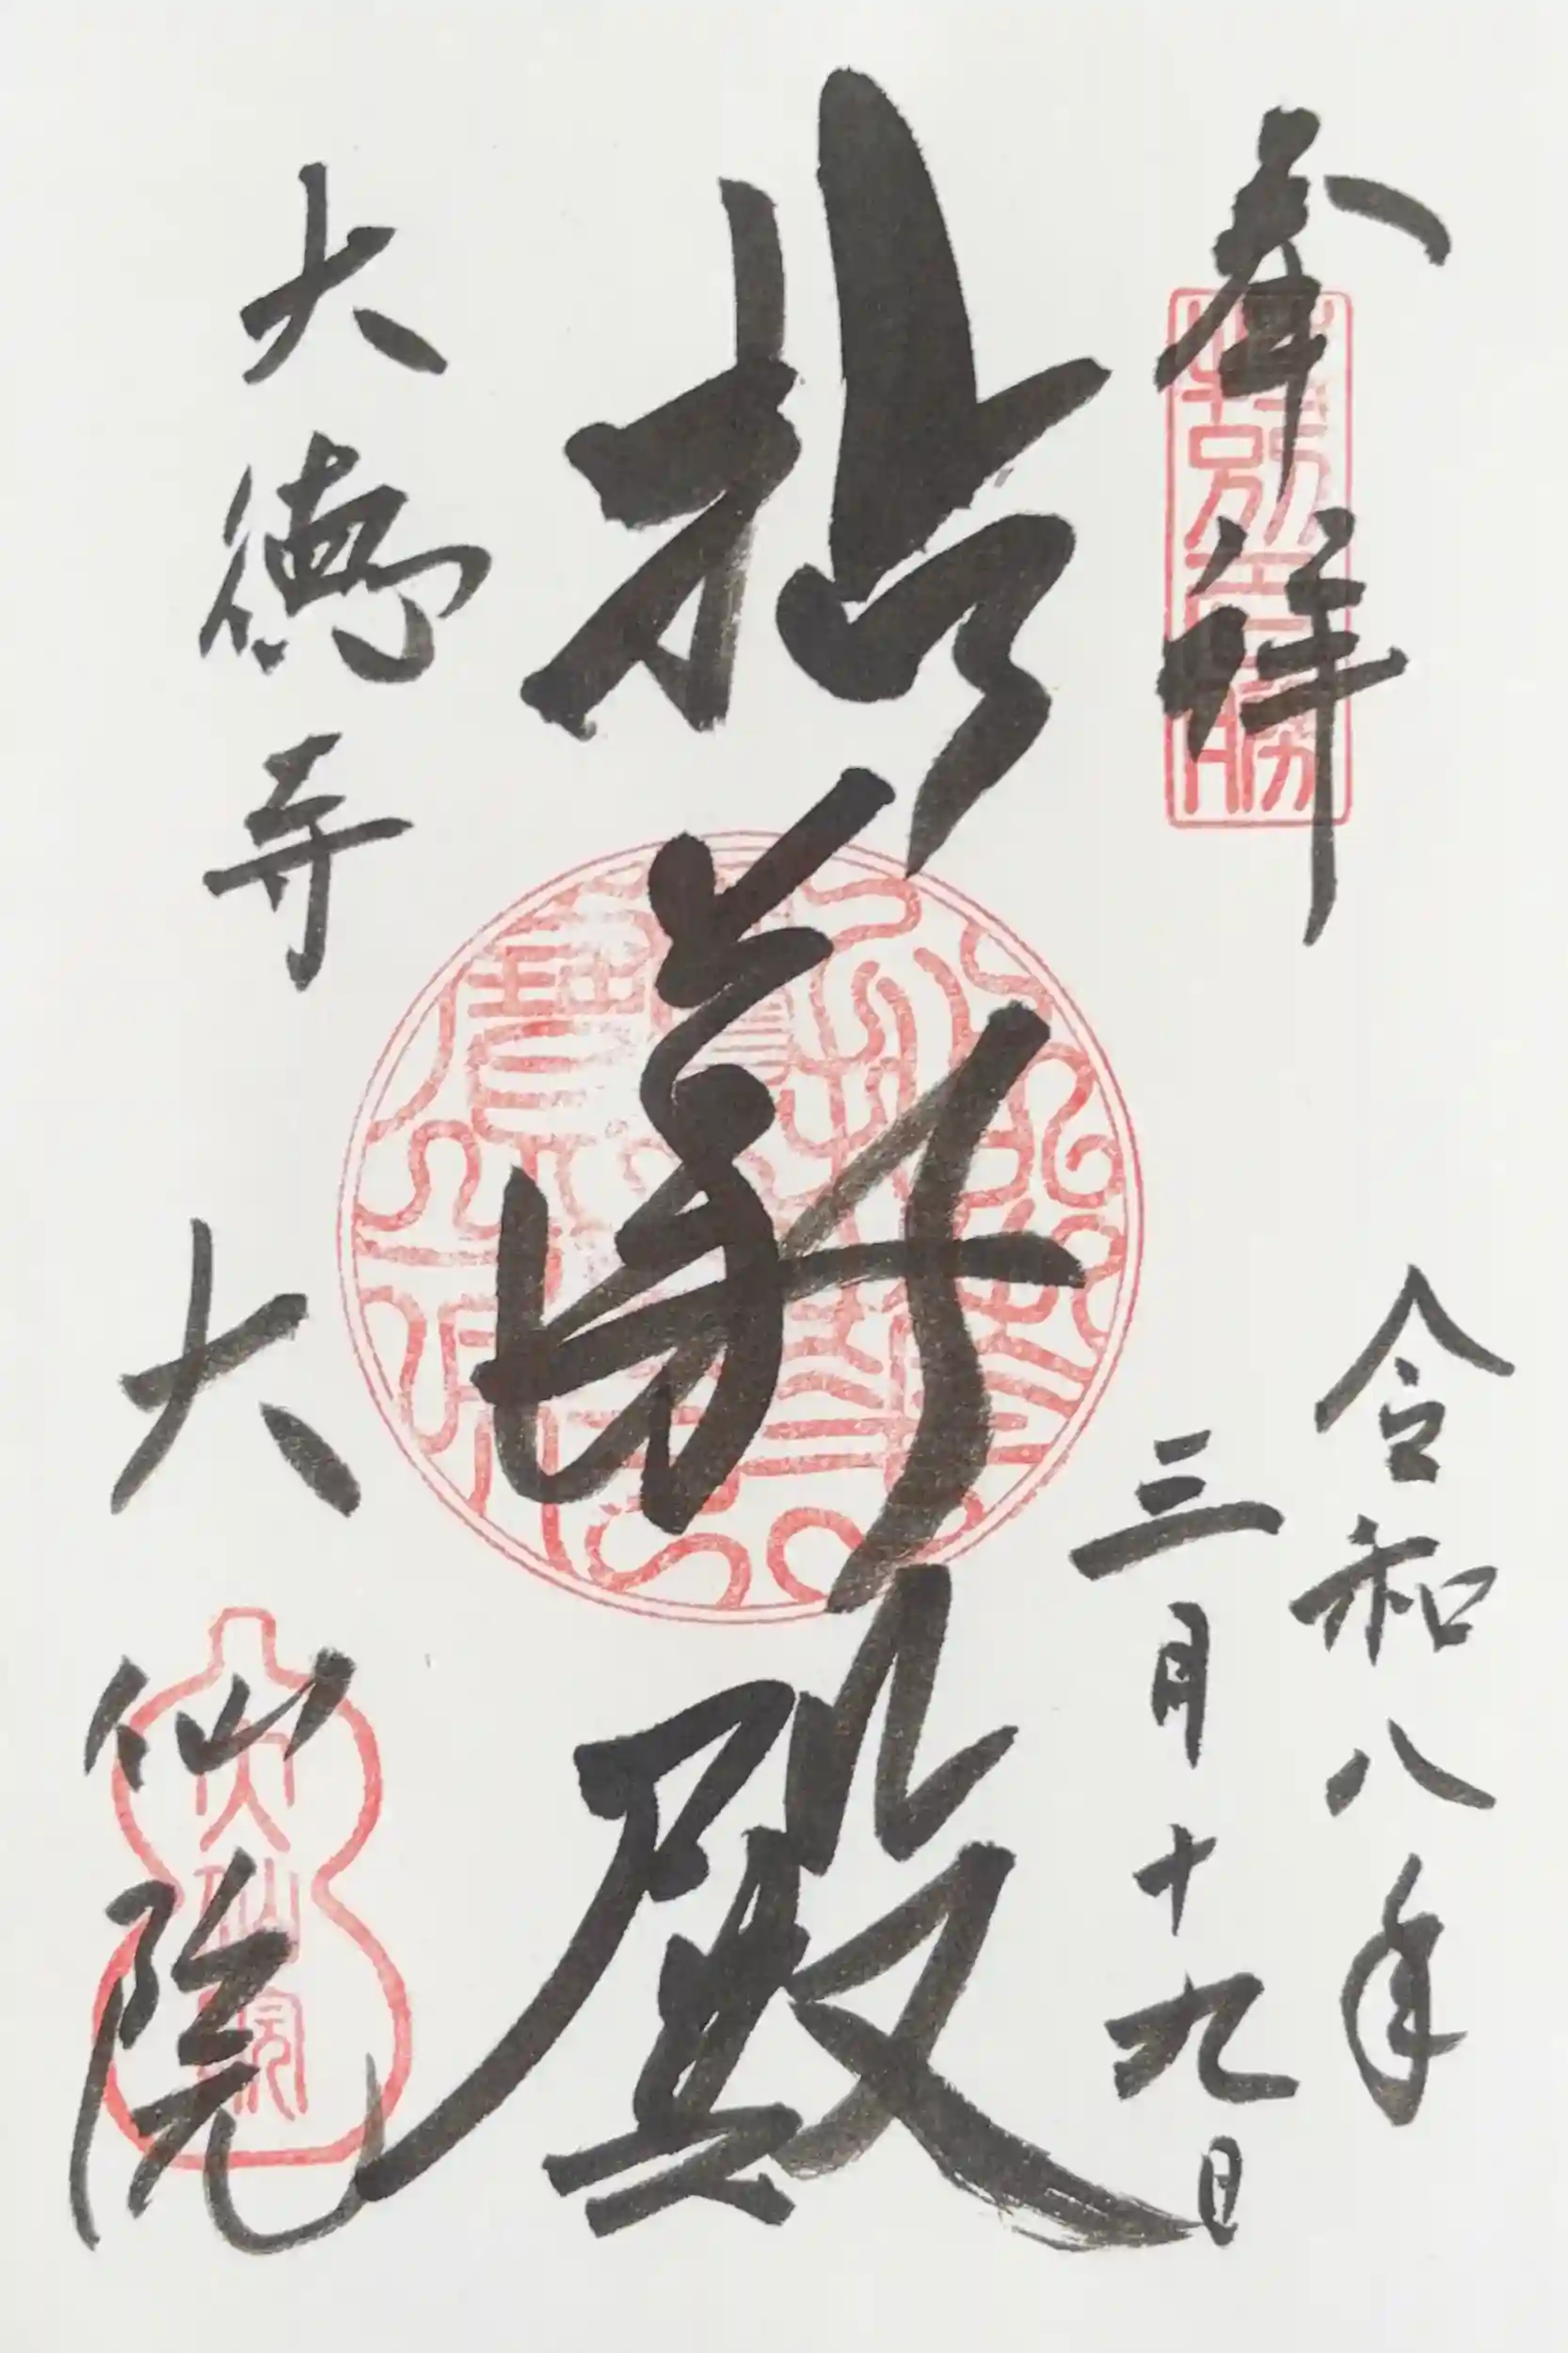 奉拝
特別古勝
令和八年
三月十九日
拈華殿
大徳寺
大仙院
大仙院